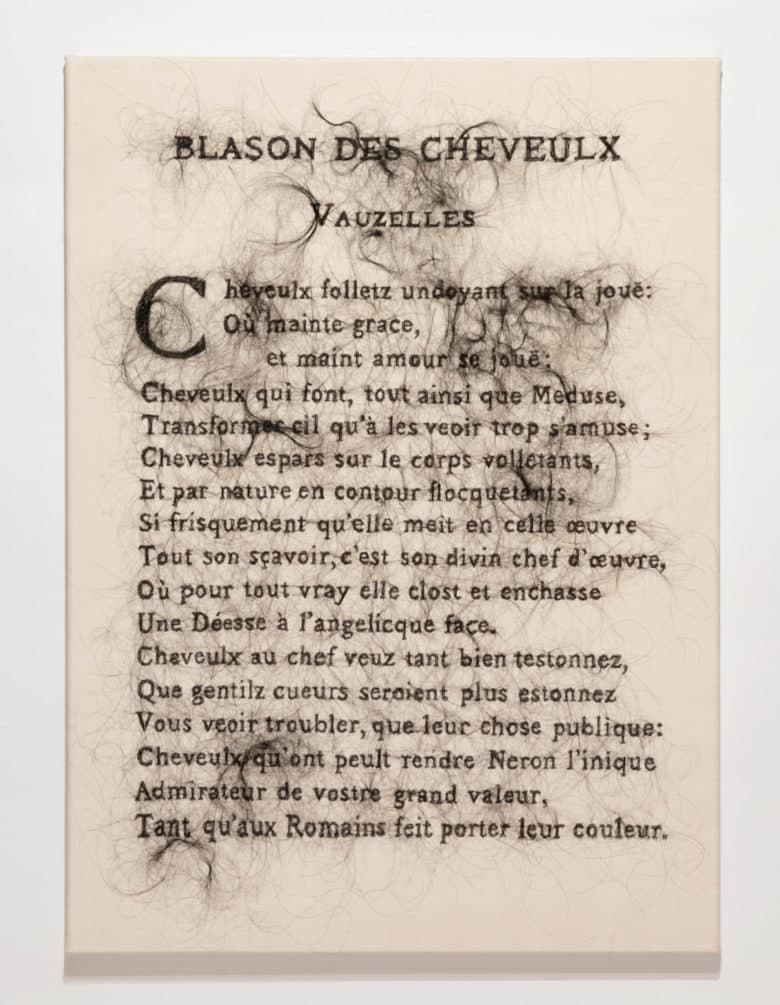 BLASON DES CHEVEULX
VAUZELLES
Cheveulx folletz undoyant sur la jouë:
Où mainte grace,
et maint amour se jouë:
Cheveulx qui font, tout ainsi que Meduse,
Transformer cil qu'à les veoir trop s'amuse;
Cheveulx espars sur le corps volletants,
Et par nature en contour flocquetants,
Si frisquement qu'elle meit en celle œuvre
Tout son sçavoir, c'est son divin chef d'œuvre,
Où pour tout vray elle clost et enchasse
Une Déesse à l'angelicque face.
Cheveulx au chef veuz tant bien testonnez,
Que gentilz cueurs seroient plus estonnez
Vous veoir troubler, que leur chose publique:
Cheveulx qu'ont peult rendre Neron l'inique
Admirateur de vostre grand valeur,
Tant qu'aux Romains feit porter leur couleur.